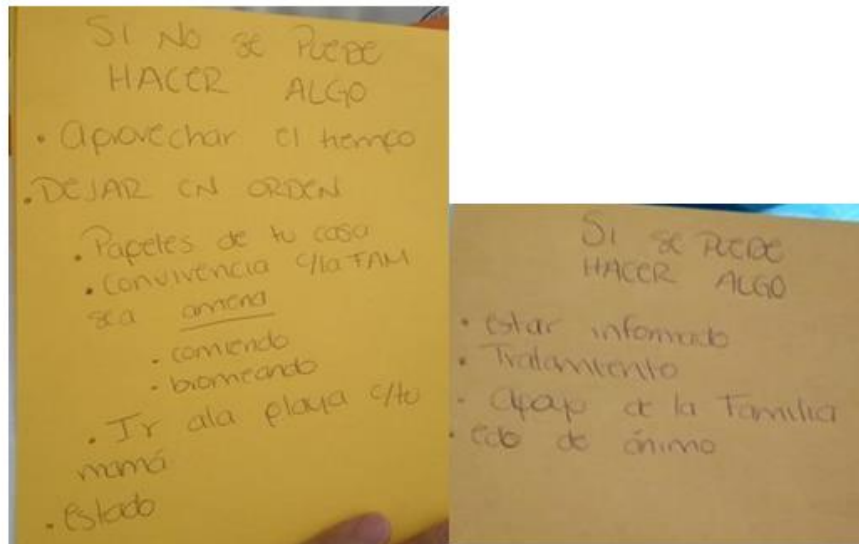 SI NO SE PUEDE
HACER ALGO
• Aprovechar el tiempo
• DEJAR EN ORDEN
• Papeles de tu casa
• Convivencia c/la FAM
sea amena
• comiendo
• bromeando
• Ir ala playa c/tu
mamá
• estado
SI SE PUEDE
HACER ALGO
• estar informado
• Tratamiento
• apoyo de la Familia
• edo de ánimo